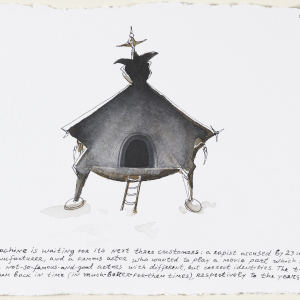 achine is waiting for its next three customers: a rapist accused by 23 w
nufacturer, and a famous actor who wanted to play a movie part which
not-so-famous-and-good actres with different, but correct identities. The ti
em back in time (in much-better-for-them times), respectively to the years